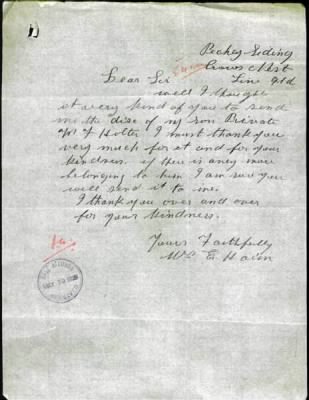 Peekey Siding
Crows Nest
Line Qld
Dear Sir
well I thought
it very kind of you to send
me the disc of my son Private
I must thank you
very much for it and for your
kindness. if there is any more
belonging to him I am sure you
will send it to me.
I thank you over and over
for your kindness.
Yours Faithfully
Mrs E